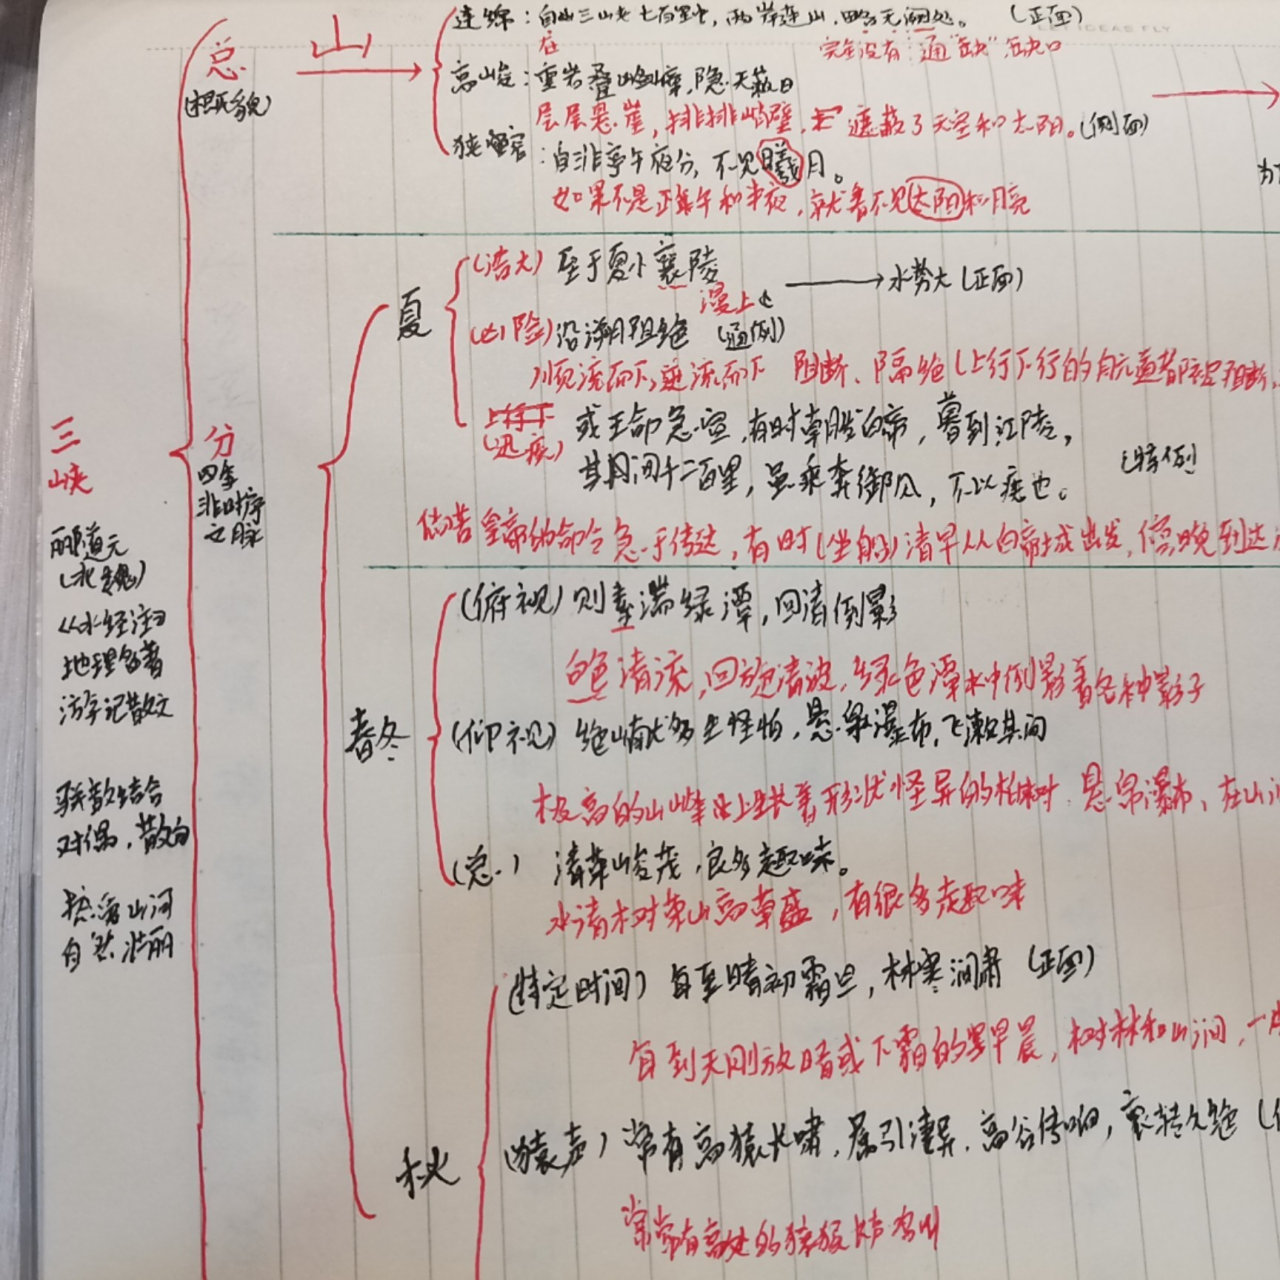 连绵：自三峡七百里中，两岸连山，略无阙处。（正面）
在
完全没有 通"缺" 缺口
总 山
(概貌)
高峻：重岩叠嶂，隐天蔽日
层层悬崖，排排峭壁，遮蔽了天空和太阳。(侧面)
狭窄：自非亭午夜分，不见曦月。
如果不是正午和半夜，就看不见太阳和月亮
夏
(浩大) 至于夏水襄陵 水势大(正面)
漫上
(凶险) 沿溯阻绝 (通例)
顺流而下，逆流而下 阻断、隔绝(上行下行的航道都
(迅疾) 或王命急宣，有时朝发白帝，暮到江陵，
其间千二百里，虽乘奔御风，不以疾也。 (特例)
皇帝的命令急于传达，有时(坐船)清早从白帝城出发，傍晚到达
三峡
分
四季
非时序
之脉
郦道元
(北魏)
《水经注》
地理名著
游记散文
骈散结合
对偶，散句
热爱山河
自然壮丽
春冬
(俯视) 则素湍绿潭，回清倒影
白色清流，回旋清波，绿色潭水中倒影着各种影子
(仰视) 绝巘多生怪柏，悬泉瀑布，飞漱其间
极高的山峰上生长着形状怪异的柏树 悬泉瀑布，在山
(总) 清荣峻茂，良多趣味。
水清树荣山高草盛，有很多趣味
秋
(特定时间) 每至晴初霜旦，林寒涧肃 (正面)
每到天刚放晴或下霜的早晨，树林和山涧，一
(猿声) 常有高猿长啸，属引凄异，高谷传响，哀转久绝
常常有高处的猿猴长声鸣叫